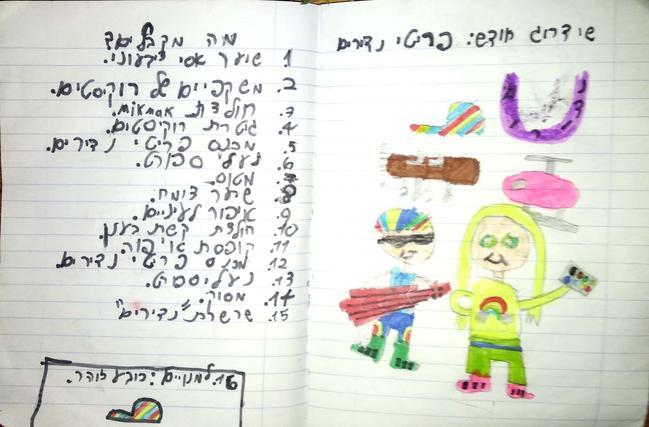 שידרוג חודש: פריטי נדירים
מה מקבלים?
1 שיער אסי ציבעוני.
2. משקפיים של רוקיסטים.
3. חולצת Mikmak.
4. גיטרת רוקיסטים.
5. מכנס פריטי נדירים.
6. נעלי ספורט.
7. מטוס.
8. שיער צומח.
9. איפור לעיניים.
10. חולצת קשת בענן.
11. קופסת איפור.
12. מכנס פריטי נדירים.
13. נעלי ספורט.
14. מסור.
15. שרשרת "נדירים"
16. למנויים: כובע זוהר.